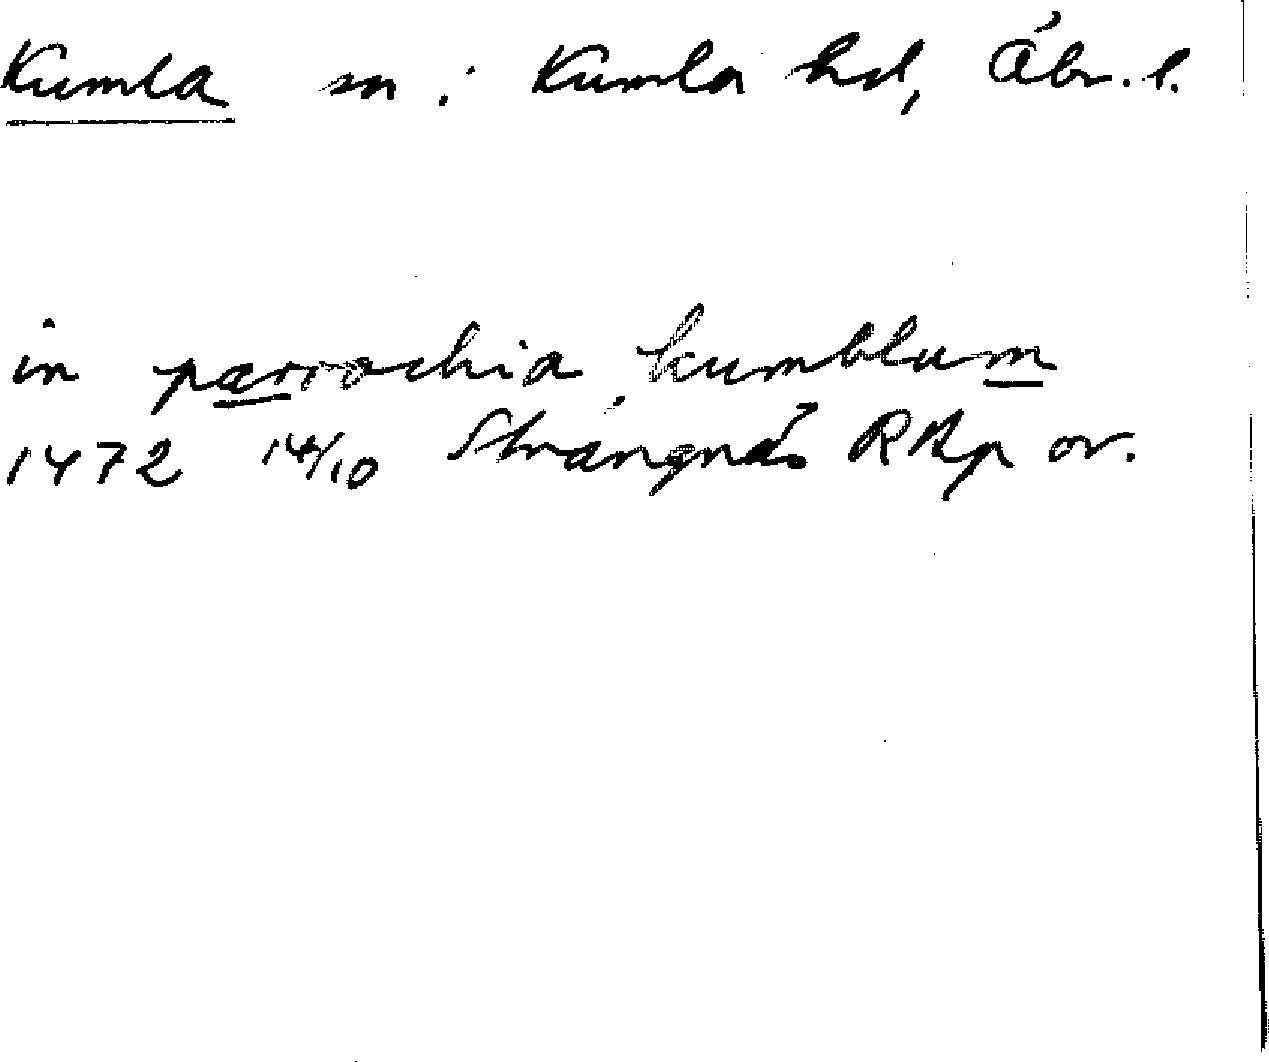 Kumla sn: Kumla hd, Öbr. l.
in parrochia kumblum
1472 14/10 Strängnäs RAp or.